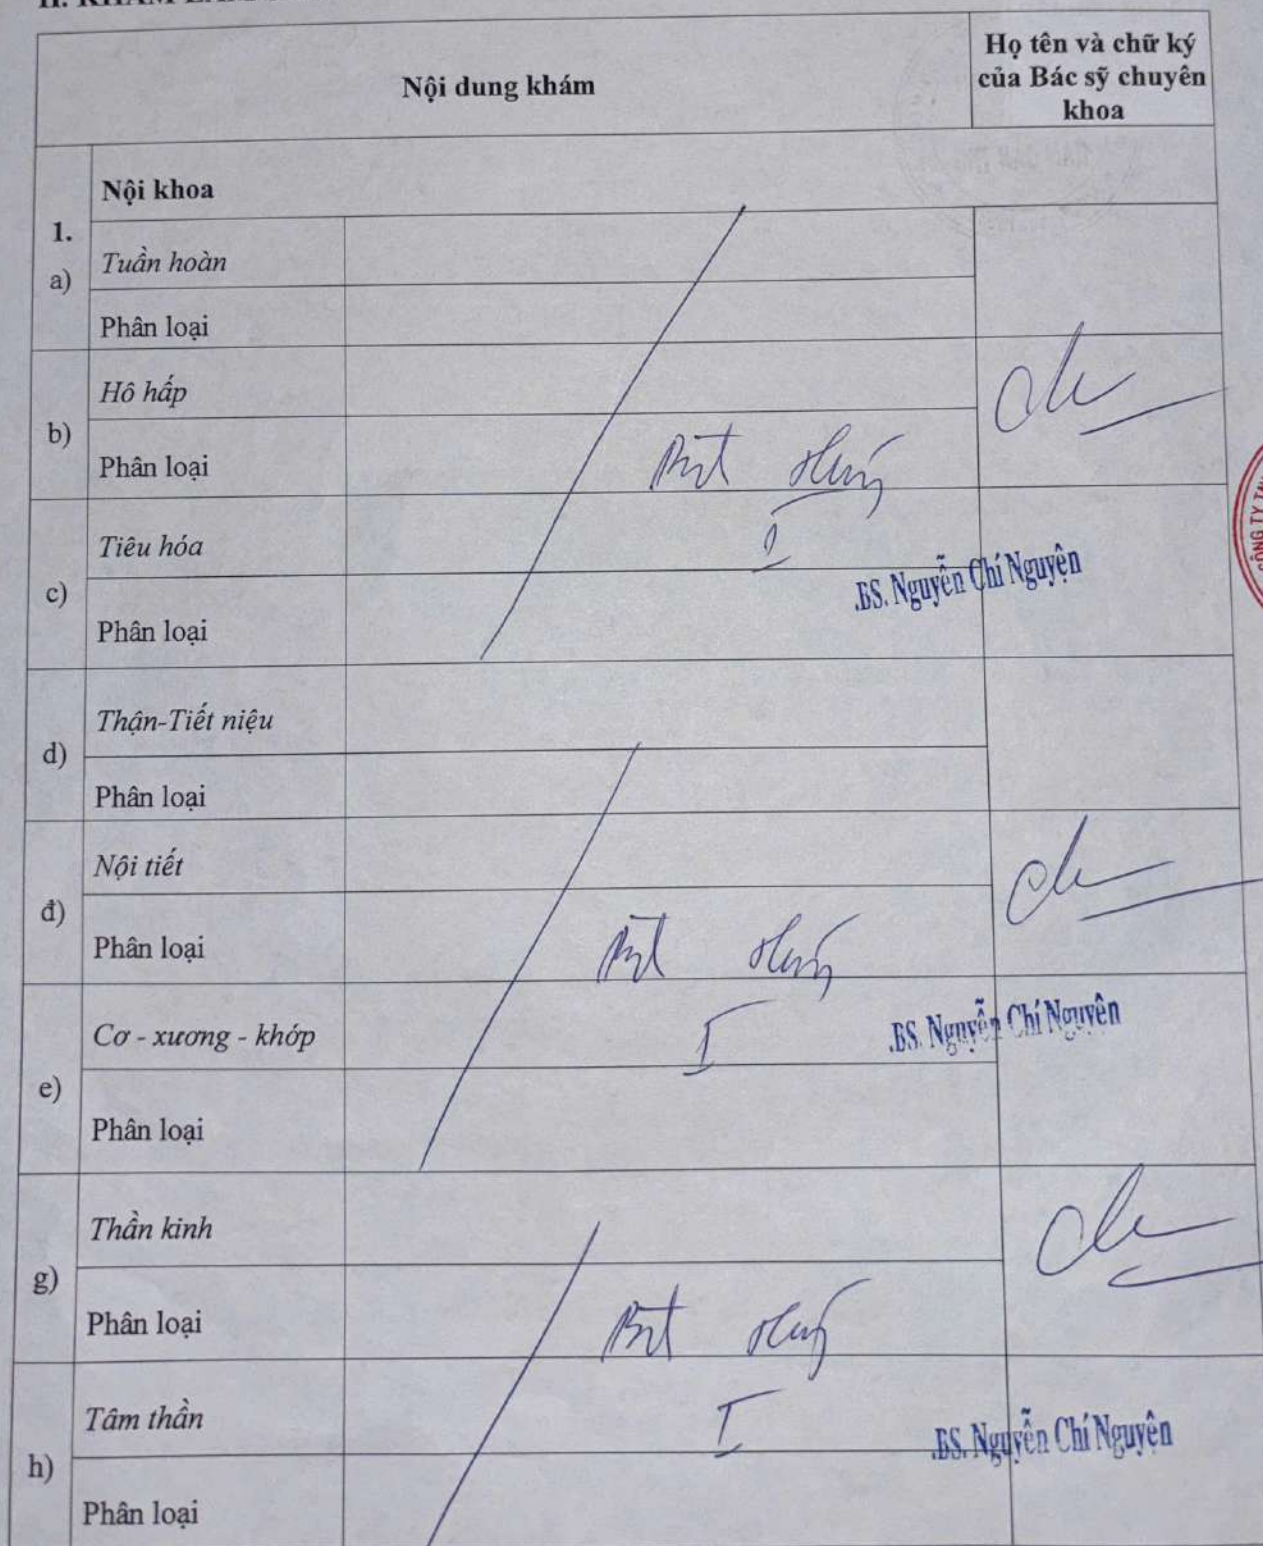 Nội dung khám
Họ tên và chữ ký
của Bác sỹ chuyên
khoa
1.
Nội khoa
a)
Tuần hoàn
Phân loại
b)
Hô hấp
Phân loại
c)
Tiêu hóa
I
Phân loại
BS. Nguyễn Chí Nguyện
d)
Thận-Tiết niệu
Phân loại
đ)
Nội tiết
Phân loại
e)
Cơ - xương - khớp
I
BS. Nguyễn Chí Nguyên
Phân loại
g)
Thần kinh
Phân loại
h)
Tâm thần
I
BS. Nguyễn Chí Nguyên
Phân loại
CÔNG TY